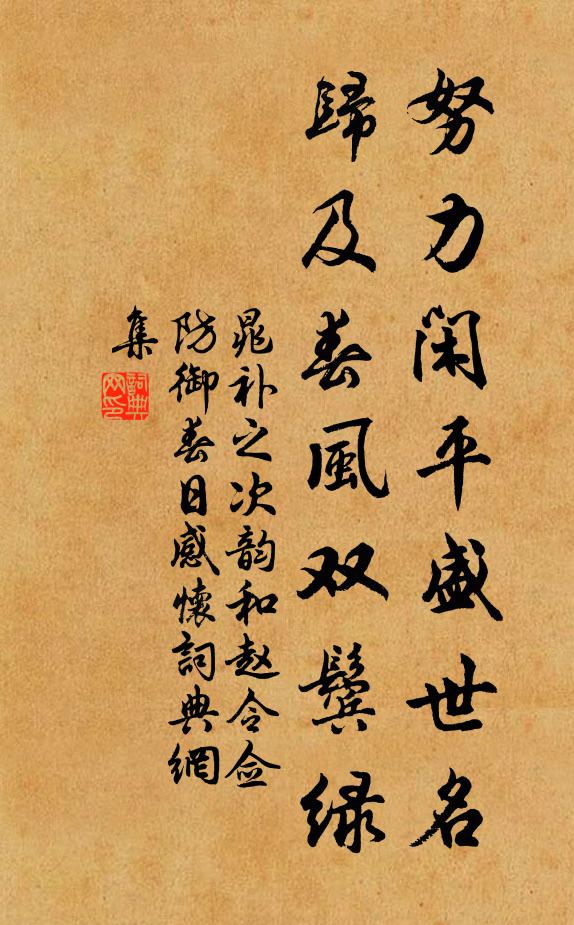 努力闲平盛世名
歸及春風双鬓绿
晁补之次韵和赵令佥
防御春日感懷詞典網
集
詞典
网印